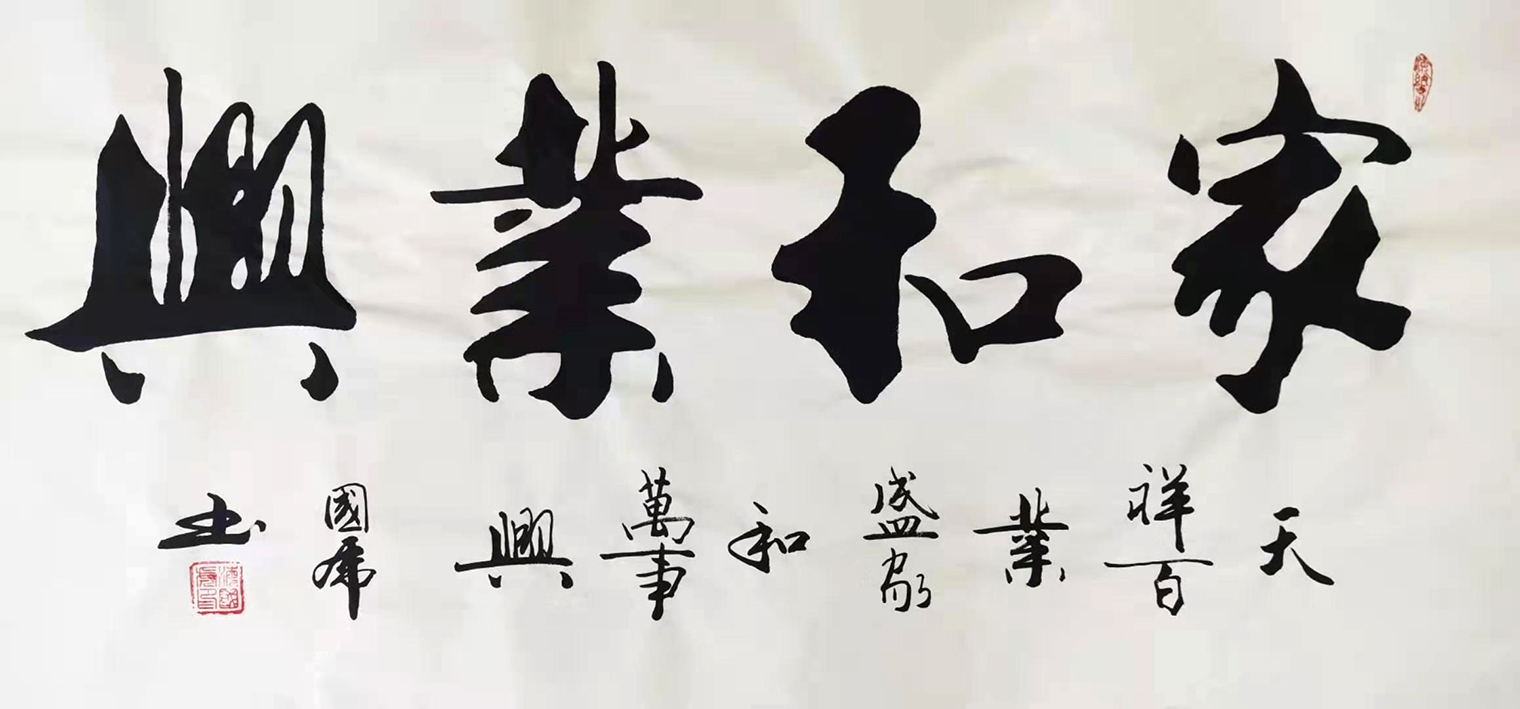 家和業興
天祥百業盛家和萬事興
國虎書